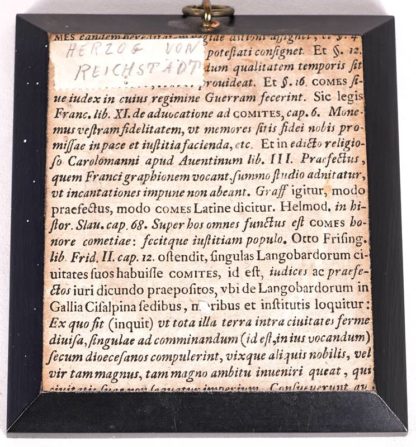 HERZOG VON
REICHSTADT
MES eandem
potestati consignet. Et §. 12.
dum qualitatem temporis sit
prouideat. Et §. 16. COMES si-
ue iudex in cuius regimine Guerram fecerint. Sic legis
Franc. lib. XI. de aduocatione ad COMITES, cap. 6. Mone-
mus vestram fidelitatem, vt memores sitis fidei nobis pro-
missae in pace et iustitia facienda, etc. Et in edicto religio-
so Carolomanni apud Auentinum lib. III. Praefectus,
quem Franci graphionem vocant, summo studio adnitatur,
vt incantationes impune non abeant. Graff igitur, modo
praefectus, modo COMES Latine dicitur. Helmod. in hi-
stor. Slau. cap. 68. Super hos omnes functus est COMES ho-
nore cometiae: fecitque iustitiam populo. Otto Frising.
lib. Frid. II. cap. 12. ostendit, singulas Langobardorum ci-
uitates suos habuisse COMITES, id est, iudices ac praefe-
ctos iuri dicundo praepositos, vbi de Langobardorum in
Gallia Cisalpina sedibus, moribus et institutis loquitur:
Ex quo fit (inquit) vt tota illa terra intra ciuitates ferme
diuisa, singulae ad comminandum (id est, in ius vocandum)
secum dioecesanos compulerint, vixque aliquis nobilis, vel
vir tam magnus, tam magno ambitu inueniri queat, qui
ciuitatis suae non sequatur imperium. Consueuerunt au-